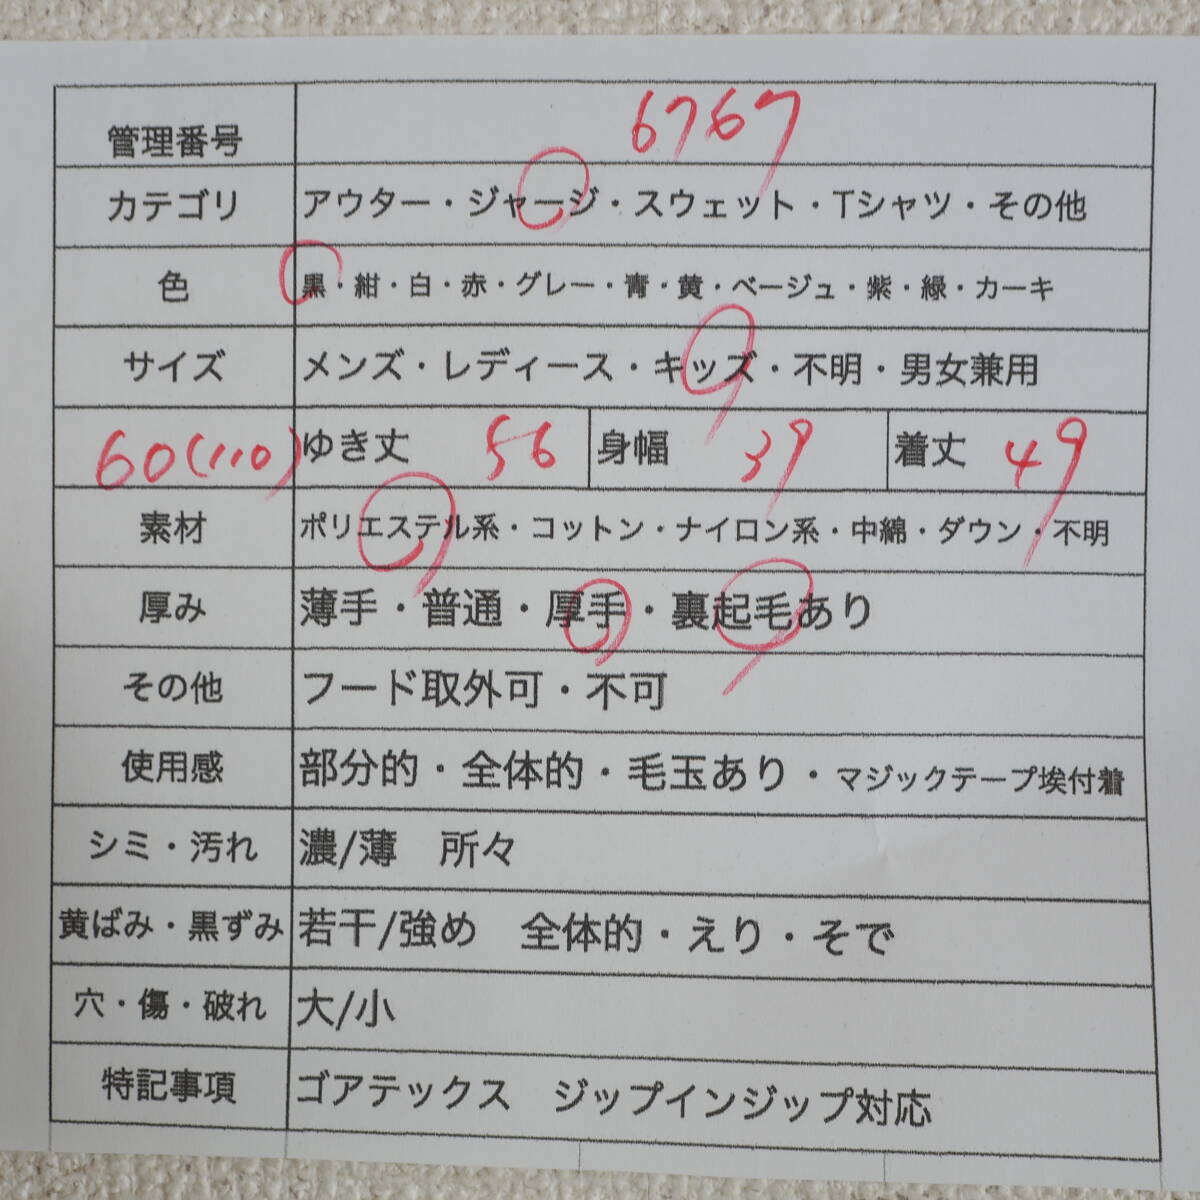 管理番号 6767
カテゴリ アウター・ジャージ・スウェット・Tシャツ・その他
色 黒・紺・白・赤・グレー・青・黄・ベージュ・紫・緑・カーキ
サイズ メンズ・レディース・キッズ・不明・男女兼用
60(110) ゆき丈 56 身幅 39 着丈 49
素材 ポリエステル系・コットン・ナイロン系・中綿・ダウン・不明
厚み 薄手・普通・厚手・裏起毛あり
その他 フード取外可・不可
使用感 部分的・全体的・毛玉あり・マジックテープ埃付着
シミ・汚れ 濃/薄 所々
黄ばみ・黒ずみ 若干/強め 全体的・えり・そで
穴・傷・破れ 大/小
特記事項 ゴアテックス ジップインジップ対応